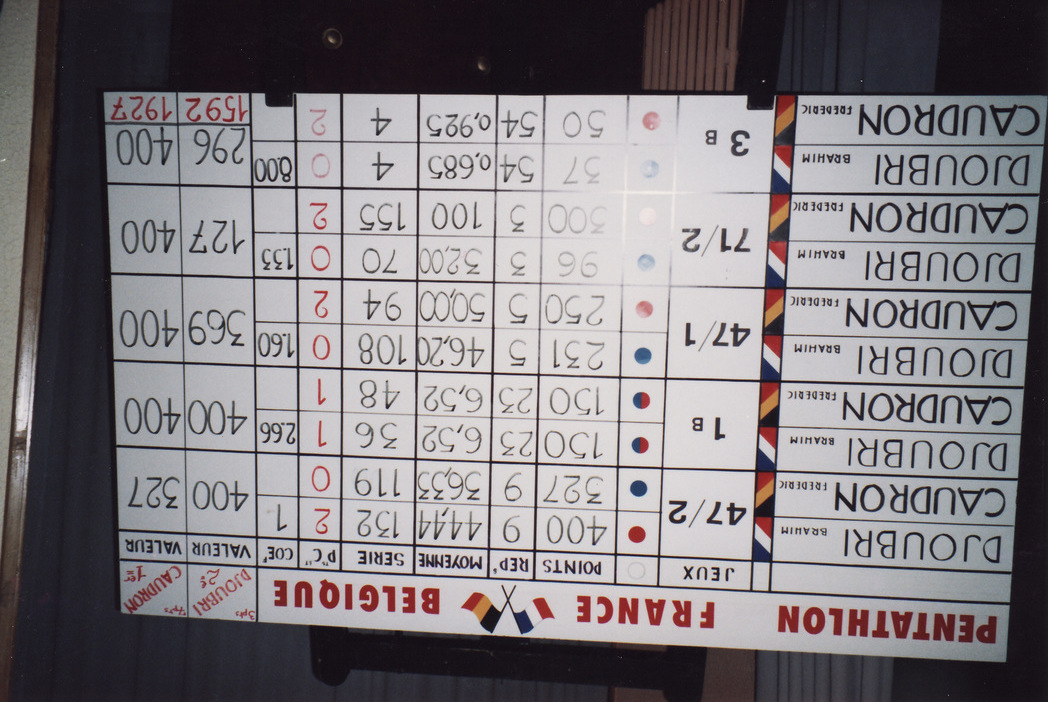 PENTATHLON FRANCE BELGIQUE DJOUBRI 2e 3pts CAUDRON 1er 7pts
JEUX POINTS REPs MOYENNE SERIE Pts Ct COEFt VALEUR VALEUR
DJOUBRI BRAHIM 47/2 400 9 44,44 132 2 1 400 327
CAUDRON FREDERIC 327 9 36,33 119 0
DJOUBRI BRAHIM 1 B 150 23 6,52 36 1 2.66 400 400
CAUDRON FREDERIC 150 23 6,52 48 1
DJOUBRI BRAHIM 47/1 231 5 46,20 108 0 1.60 369 400
CAUDRON FREDERIC 250 5 50,00 94 2
DJOUBRI BRAHIM 71/2 96 3 32,00 70 0 1.33 127 400
CAUDRON FREDERIC 300 3 100 155 2
DJOUBRI BRAHIM 3 B 37 54 0,685 4 0 8.00 296 400
CAUDRON FREDERIC 50 54 0,925 4 2 1592 1927